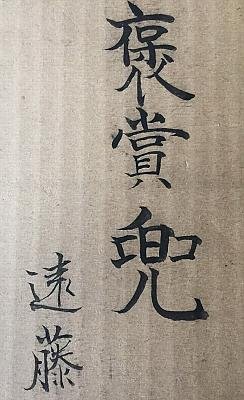 褒賞兜
遠藤